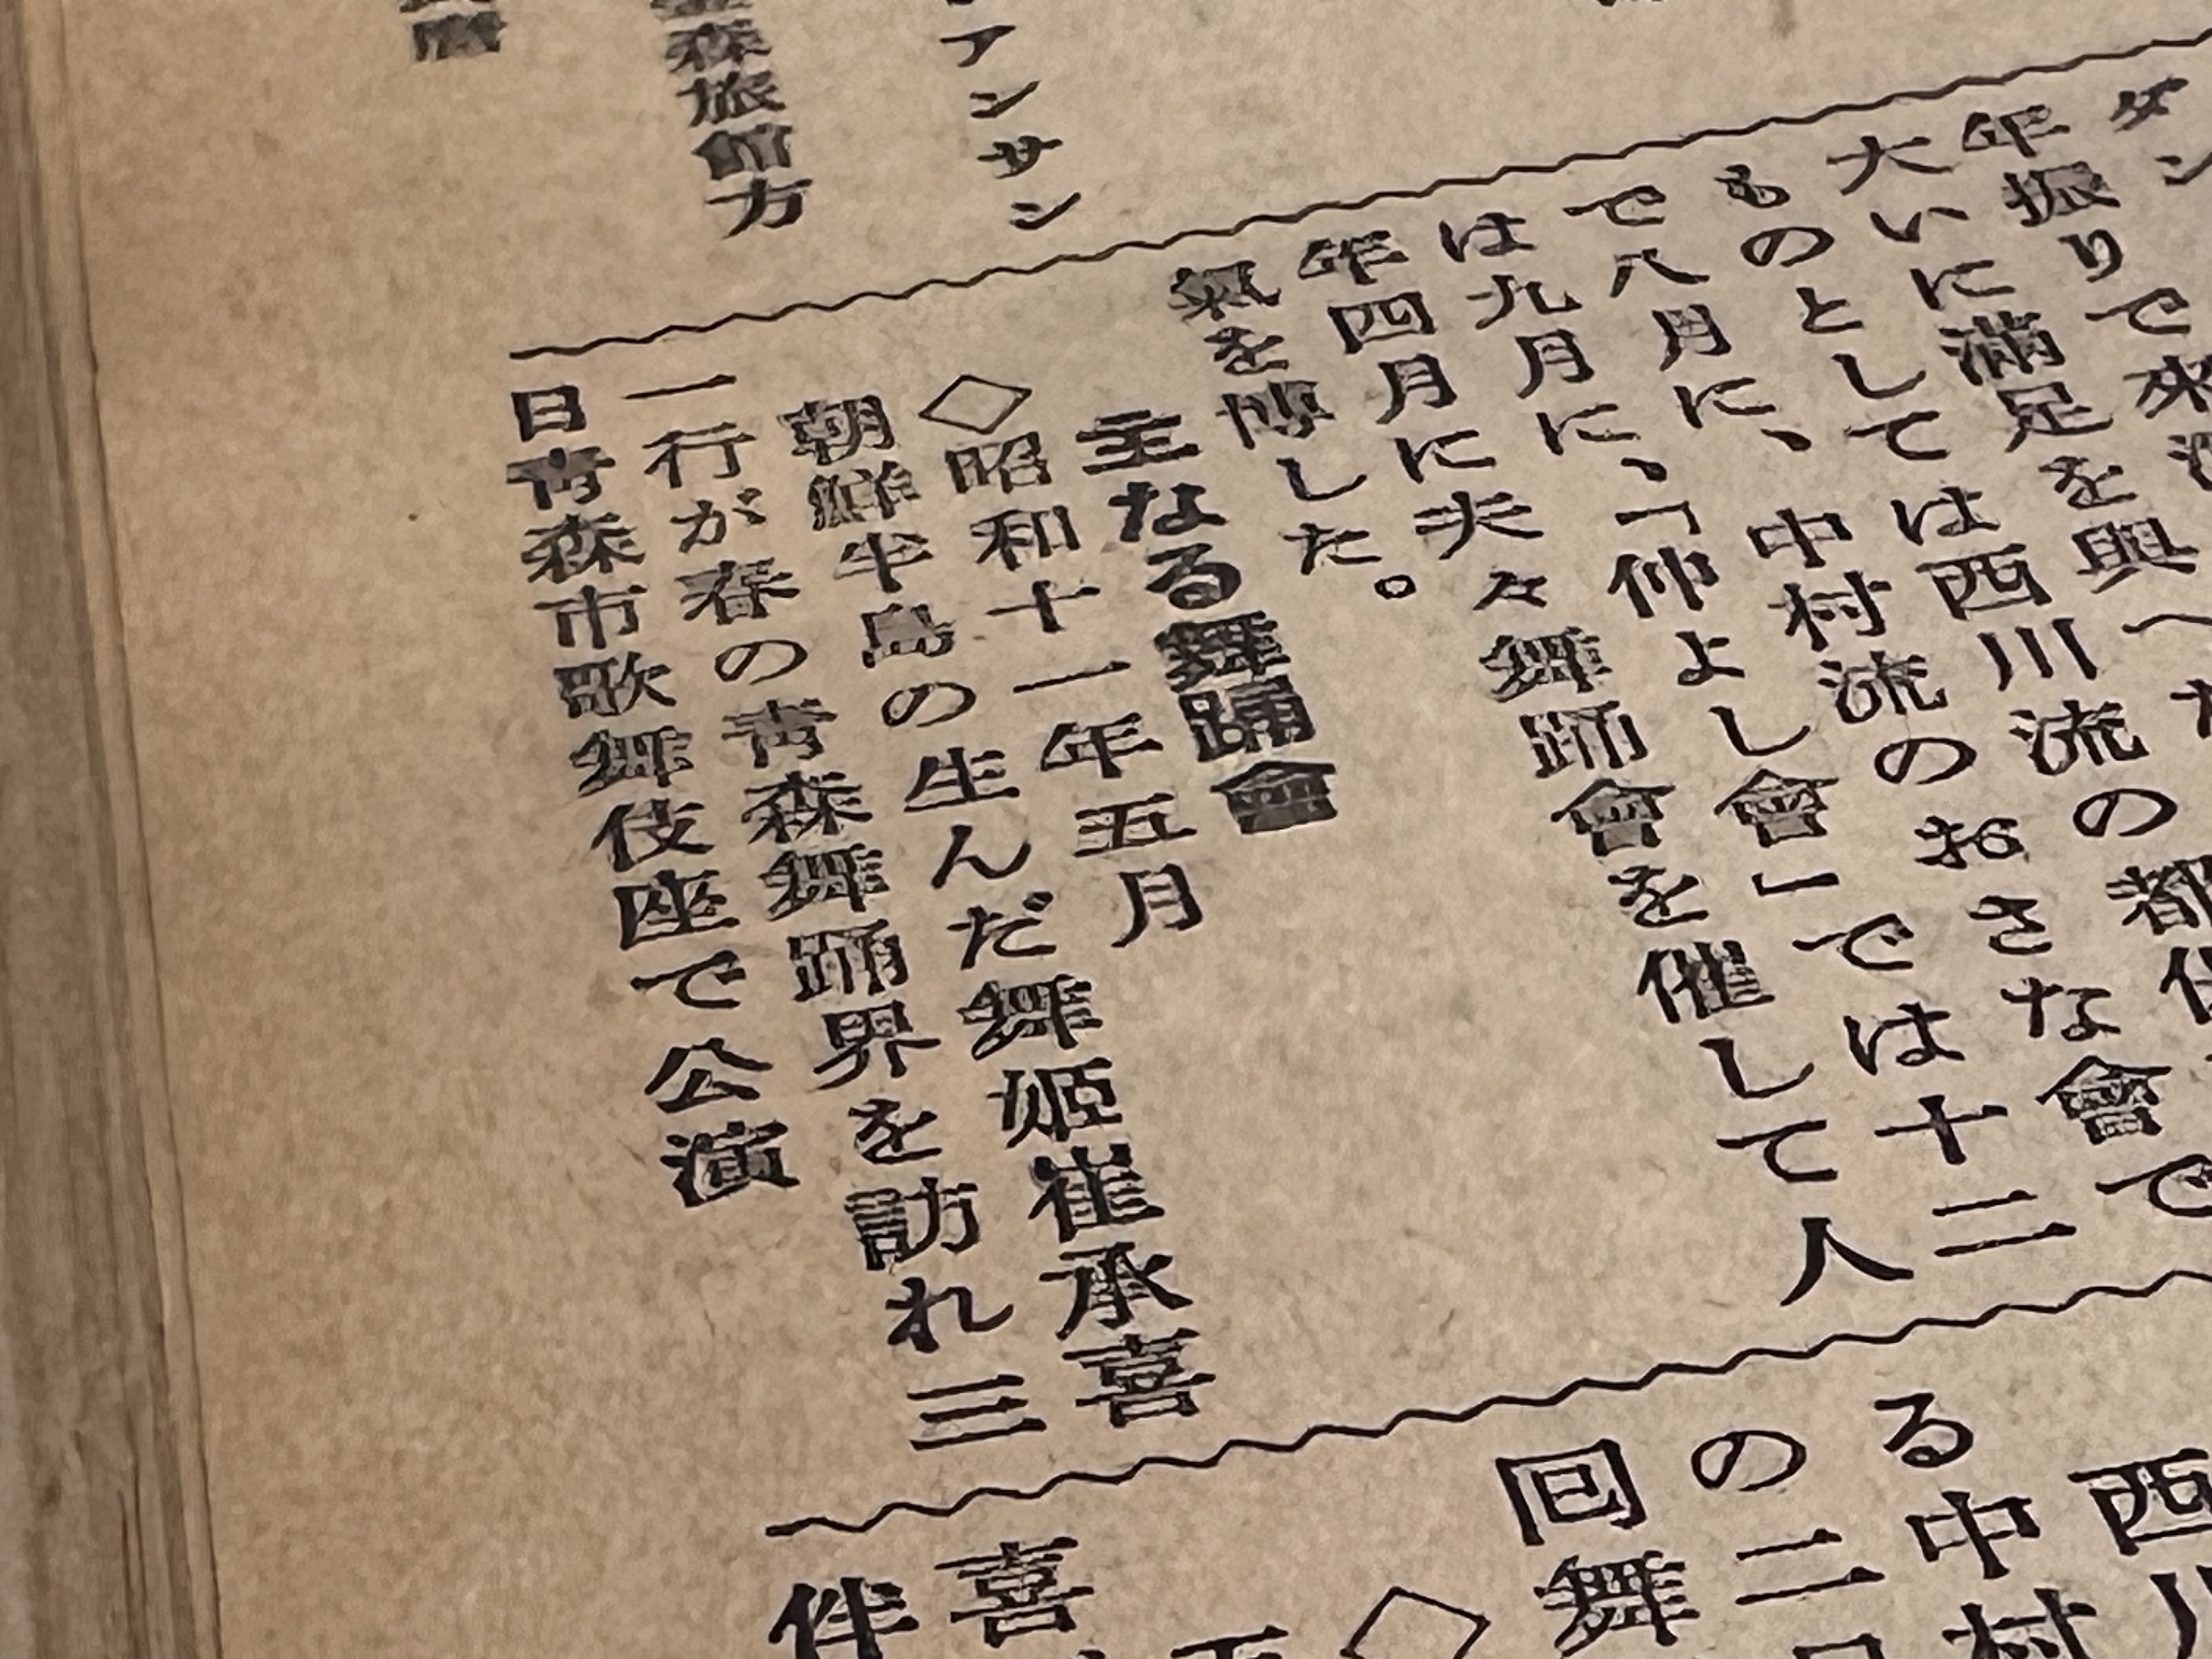 アンサン
森旅館方
ダン
年振りで來
大いに滿足を與へた
ものとしては西川流の都
で八月に、中村流のおさな會で
は九月に、「仲よし會」では十二
年四月に夫々舞踊會を催して人
氣を博した。
主なる舞踊會
◇昭和十一年五月
朝鮮半島の生んだ舞姫崔承喜
一行が春の靑森舞踊界を訪れ三
日靑森市歌舞伎座で公演
西川
る中村
の二
回舞
◇
喜
伴